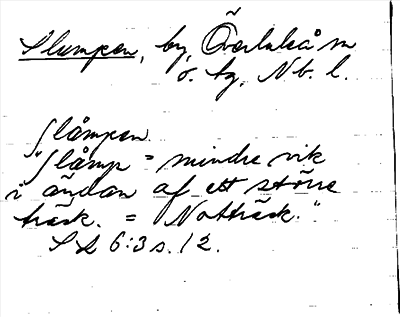 Slumpen, by, Överluleå sn
o. tg, Nb. l.
ʃlåmpen.
"ʃlåmp = mindre vik
i ändan af ett större
träsk. = Notträsk."
SL 6:3 s. 12.